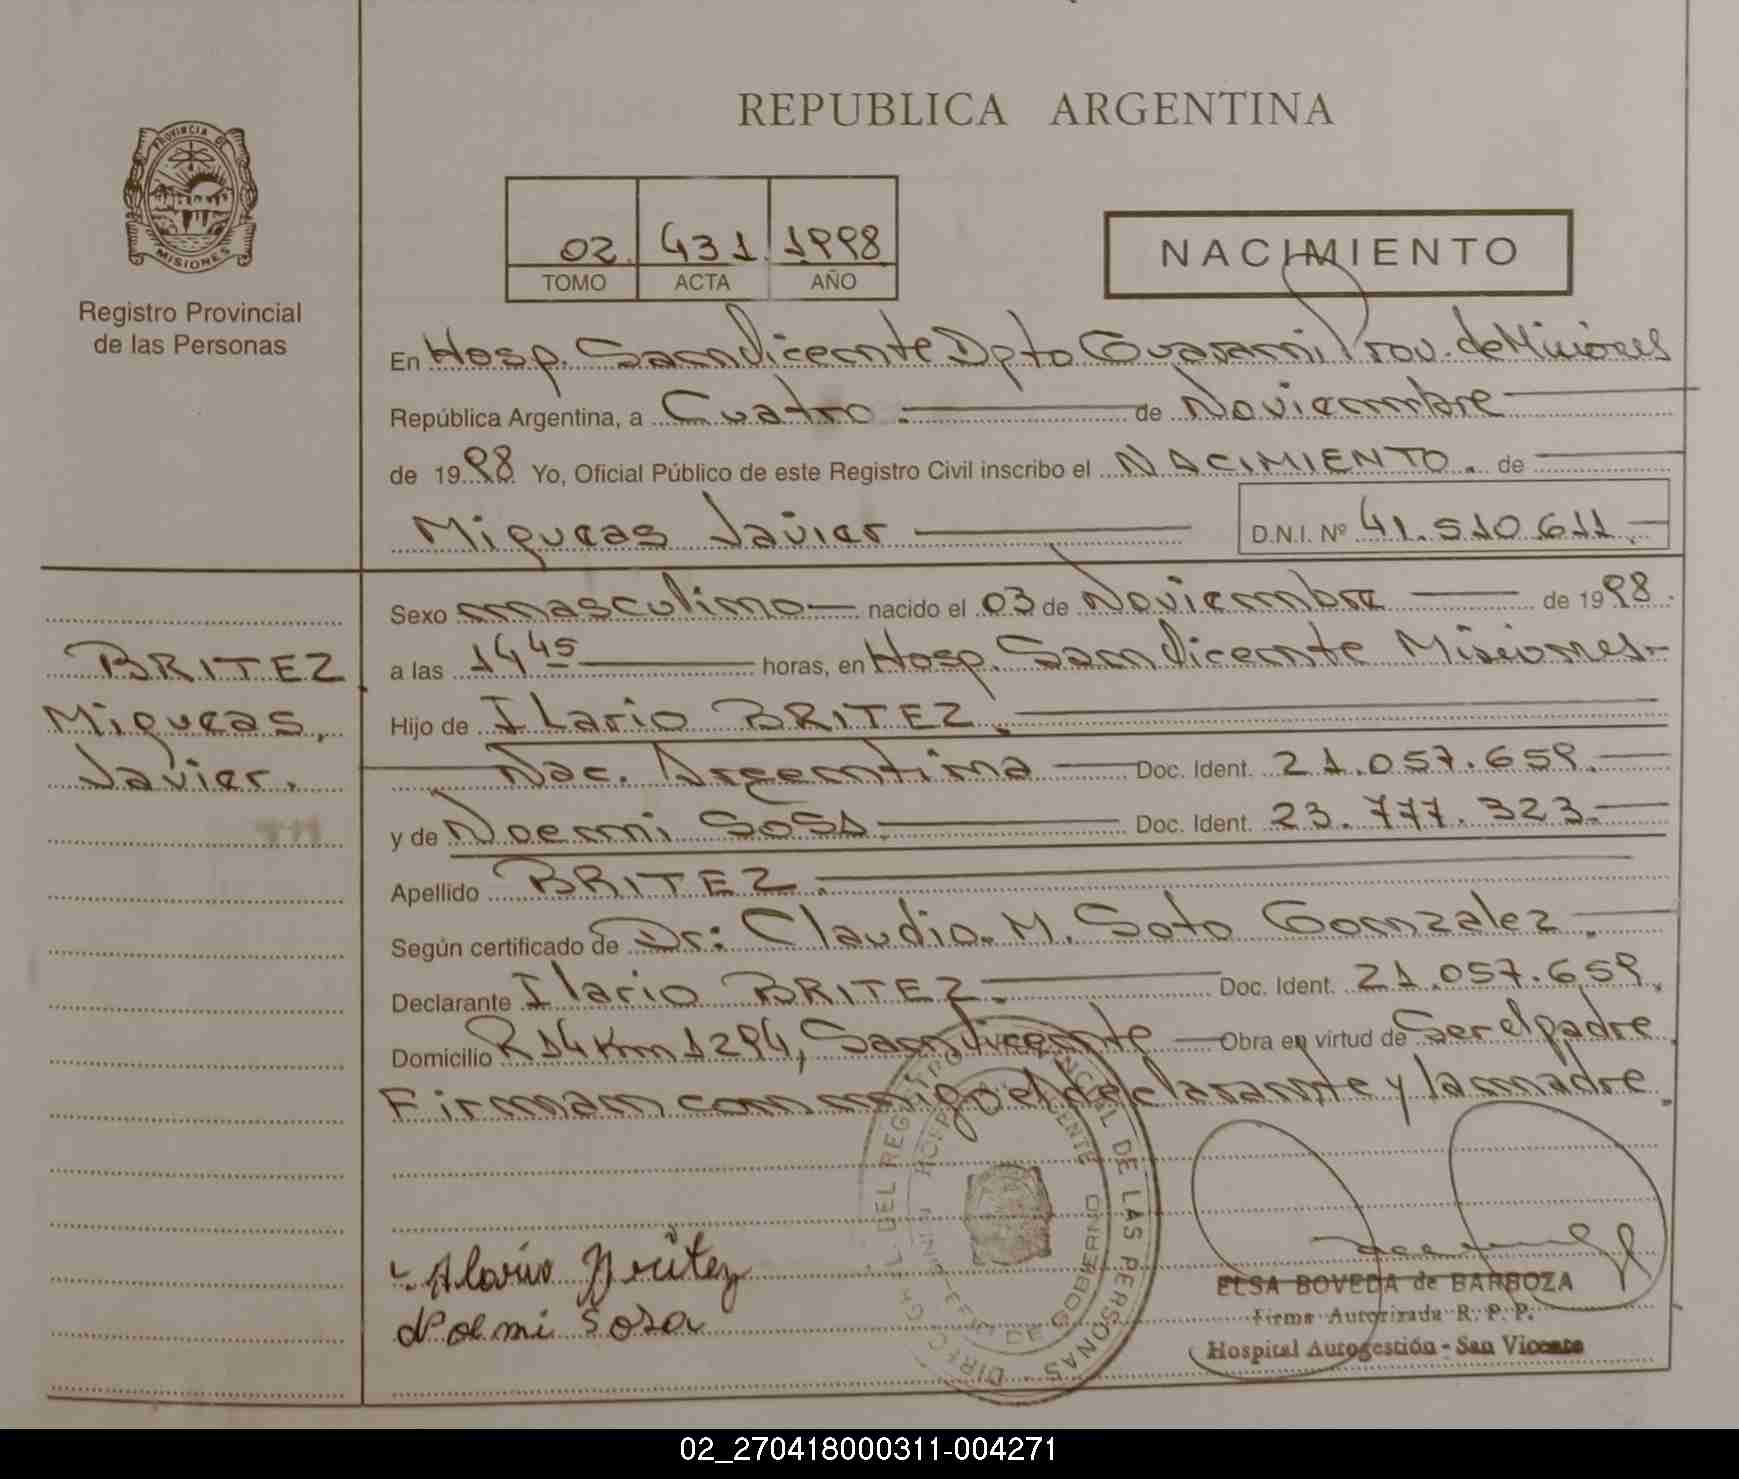 REPUBLICA ARGENTINA
PROVINCIA DE
MISIONES
Registro Provincial
de las Personas
02. 431. 1998
TOMO ACTA AÑO
NACIMIENTO
En Hosp. San Vicente Dpto Guarani Prov. de Misiones
República Argentina, a Cuatro. de Noviembre
de 1998 Yo, Oficial Público de este Registro Civil inscribo el NACIMIENTO. de
Miqueas Javier D.N.I. Nº 41.510.611.
Sexo masculino nacido el 03 de Noviembre de 1998.
a las 14 45 horas, en Hosp. San Vicente Misiones-
Hijo de Ilario BRITEZ.
Nac. Argentina Doc. Ident. 21.057.659.
y de Noemi SOSA Doc. Ident. 23.777.323.
Apellido BRITEZ.
Según certificado de Dr: Claudio. M. Soto Gonzalez.
Declarante Ilario BRITEZ. Doc. Ident. 21.057.659.
Domicilio R 14 Km 1294, San Vicente Obra en virtud de Ser el padre.
Firman conmigo el declarante y la madre.
BRITEZ
Miqueas,
Javier.
Ilario Britez
Noemi Sosa
DEL REGISTRO PROVINCIAL DE LAS PERSONAS
DE GOBIERNO
ELSA BOVEDA de BARBOZA
Firma Autorizada R. P. P.
Hospital Autogestión - San Vicente
02_270418000311-004271